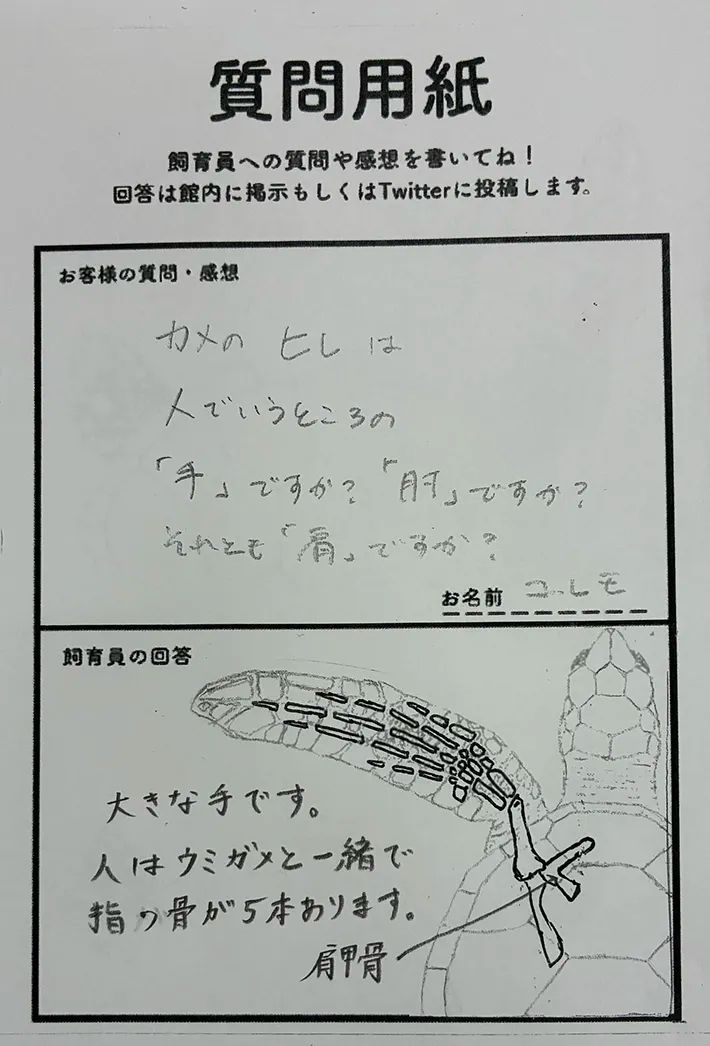 質問用紙
飼育員への質問や感想を書いてね!
回答は館内に掲示もしくはTwitterに投稿します。
お客様の質問・感想
カメの ヒレ は
人でいうところの
「手」ですか?「肘」ですか?
それとも「肩」ですか?
お名前
飼育員の回答
大きな手です。
人はウミガメと一緒で
指の骨が5本あります。
肩甲骨